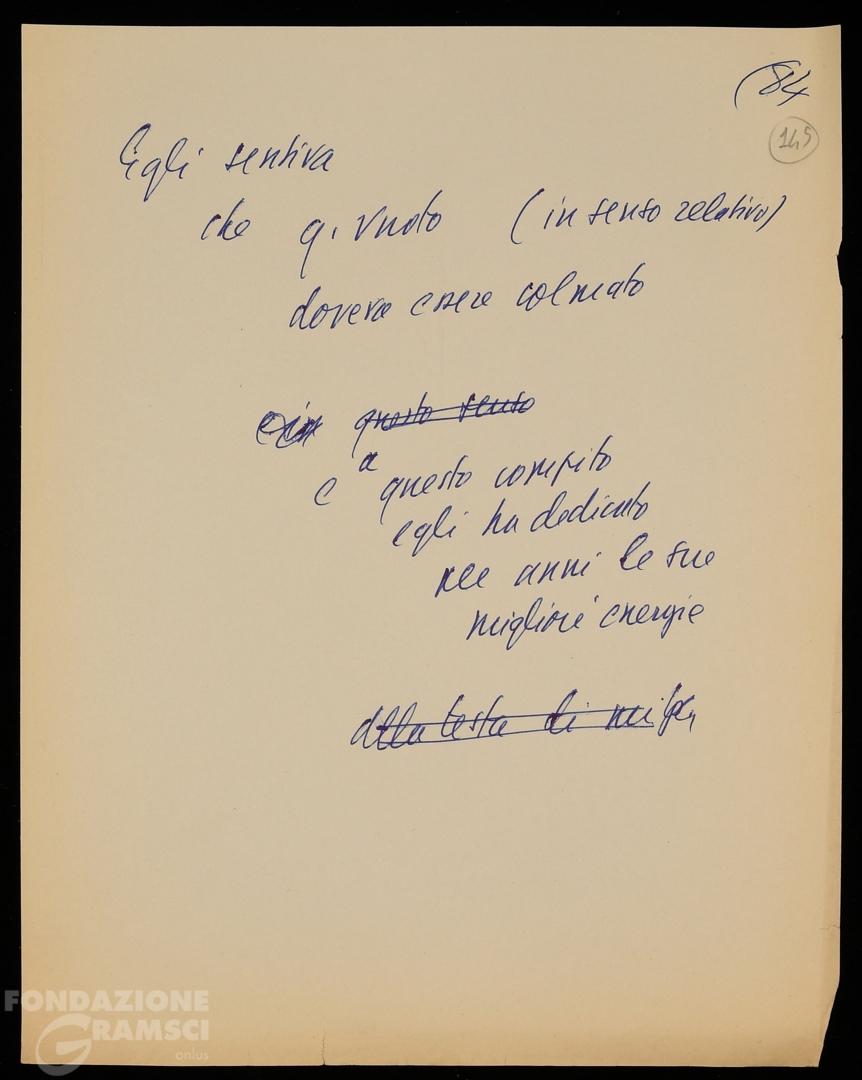 (84
145
Egli sentiva
che q. vuoto (in senso relativo)
doveva essere colmato
questo senso
e a questo compito
egli ha dedicato
anni le sue
migliori energie
alla testa di
FONDAZIONE
GRAMSCI
onlus